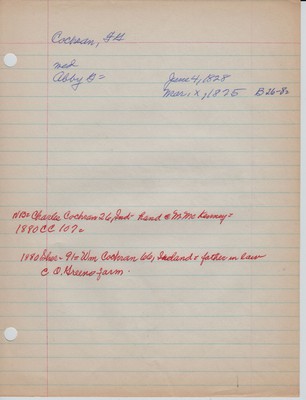 Cochran, GH
md
Abby B= Jan. 4, 1828
Mar. X, 1875 B26-8=
NB= Charles Cochran 26, Ind- hand @ M. McKenney=
1880 CC 107=
1880 - 91= Wm Cochran 66, Ireland= father in law
C. O. Greens farm.